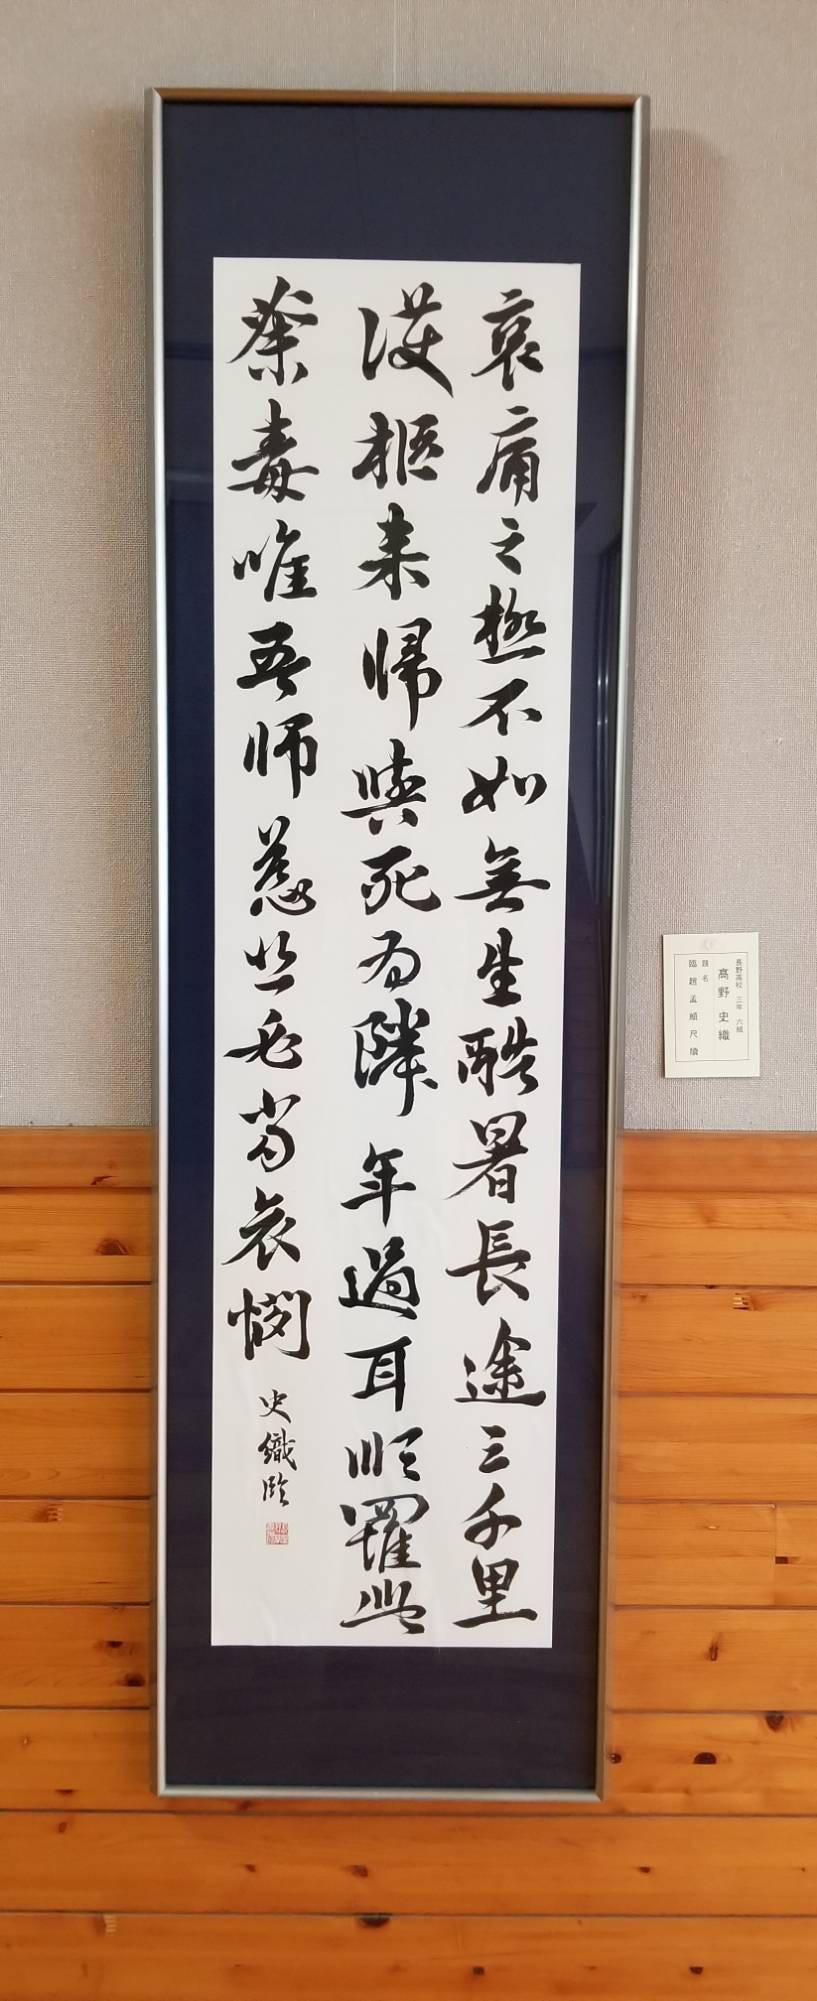 哀痛之極不如無生酷暑長途三千里
護柩来帰與死為隣年過耳順羅此
荼毒唯吾師慈悲必當哀憫
史織臨
長野高校 三年 六組
高野 史織
題名
臨趙孟頫尺牘